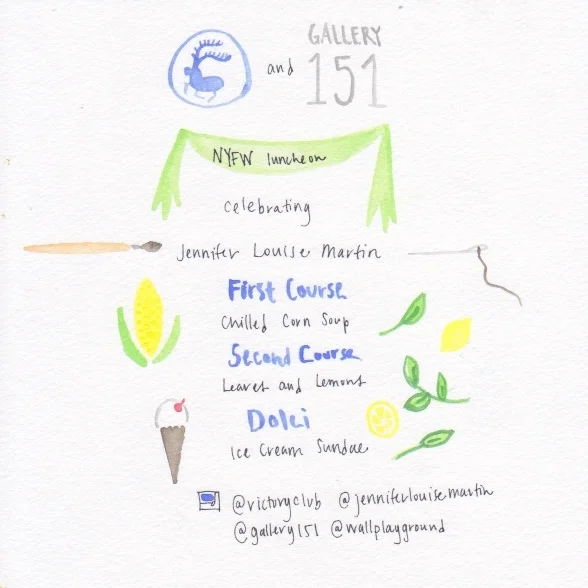 and
GALLERY
151
NYFW luncheon
celebrating
Jennifer Louise Martin
First Course
Chilled Corn Soup
Second Course
Leaves and Lemons
Dolci
Ice Cream Sundae
@victoryclub @jenniferlouisemartin
@gallery151 @wallplayground